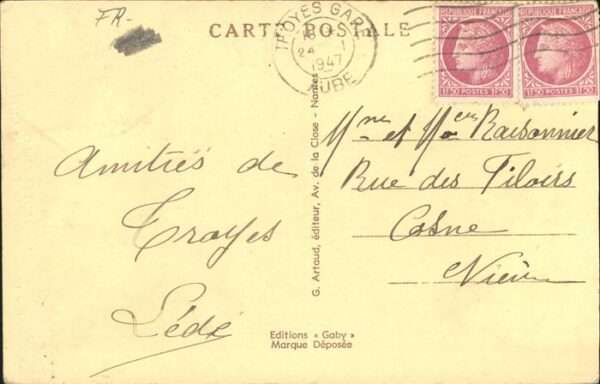 FR-
CARTE POSTALE
TROYES GARE
1947
AUBE
REPUBLIQUE FRANÇAISE
REPUBLIQUE FRANÇAISE
1F50 POSTES 1F50
1F50 POSTES 1F50
Amitiés de
Troyes
G. Artaud, éditeur, Av. de la Close - Nantes
Mme et Raisonnier
Rue des Filoirs
Cosne
Nièvre
Editions « Gaby »
Marque Déposée